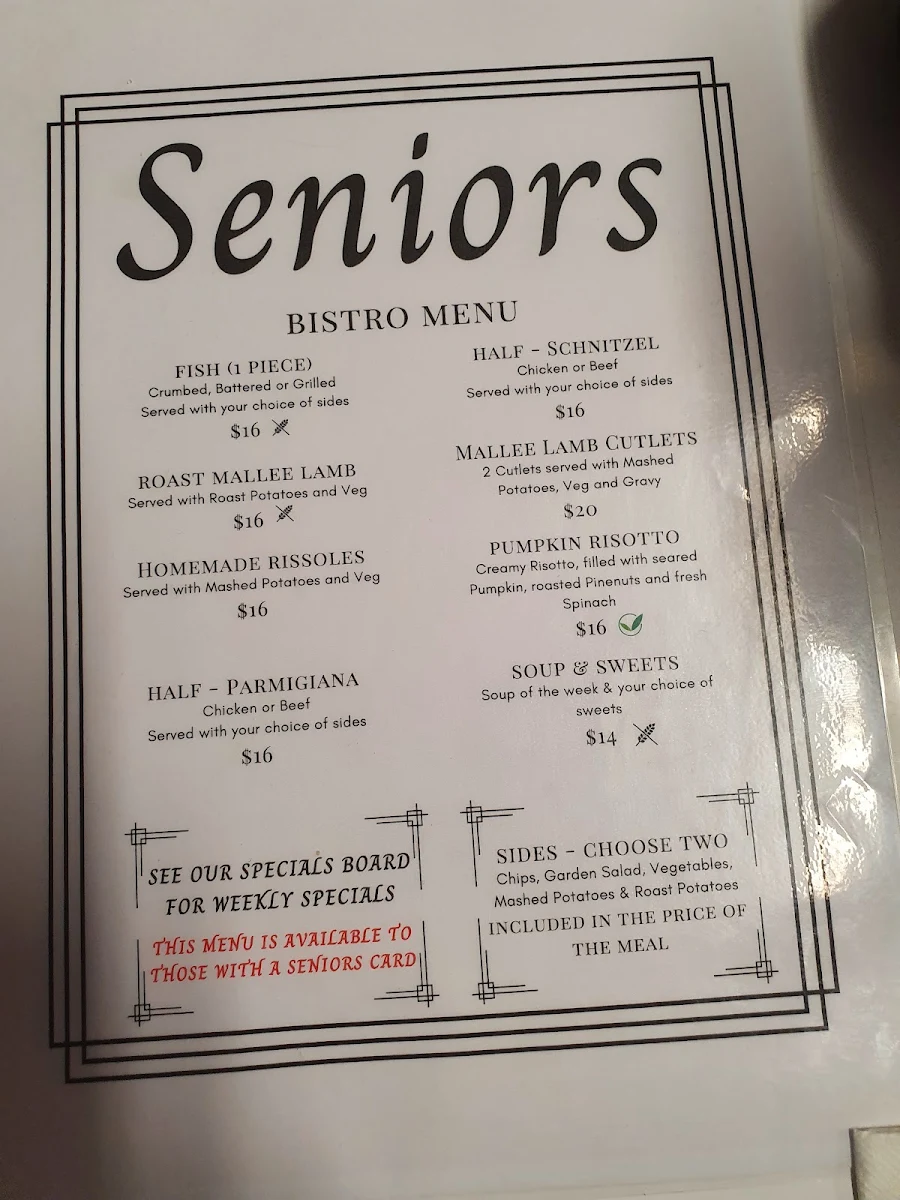 Seniors
BISTRO MENU
FISH (1 PIECE)
Crumbed, Battered or Grilled
Served with your choice of sides
$16
ROAST MALLEE LAMB
Served with Roast Potatoes and Veg
$16
HOMEMADE RISSOLES
Served with Mashed Potatoes and Veg
$16
HALF - PARMIGIANA
Chicken or Beef
Served with your choice of sides
$16
HALF - SCHNITZEL
Chicken or Beef
Served with your choice of sides
$16
MALLEE LAMB CUTLETS
2 Cutlets served with Mashed
Potatoes, Veg and Gravy
$20
PUMPKIN RISOTTO
Creamy Risotto, filled with seared
Pumpkin, roasted Pinenuts and fresh
Spinach
$16
SOUP & SWEETS
Soup of the week & your choice of
sweets
$14
SEE OUR SPECIALS BOARD
FOR WEEKLY SPECIALS
THIS MENU IS AVAILABLE TO
THOSE WITH A SENIORS CARD
SIDES - CHOOSE TWO
Chips, Garden Salad, Vegetables,
Mashed Potatoes & Roast Potatoes
INCLUDED IN THE PRICE OF
THE MEAL